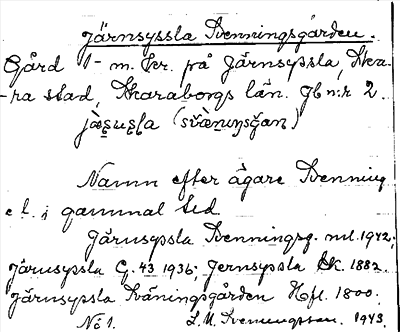 Järnsyssla Svenningsgården.
Gård 1 m. kr. på Järnsyssla, Ska-
-ra stad, Skaraborgs län. Jb nr 2.
(svæ̀nıŋsgan)
Namn efter ägare Svenning
e. l. i gammal tid.
Järnsyssla Svenningsg. ml. 1942;
Järnsyssla G. 43 1936; Jernsyssla Sk. 1882.
Järnsyssla Sväningsgården Hfl. 1800.
No 1. L. M. Svenungsson. 1943.